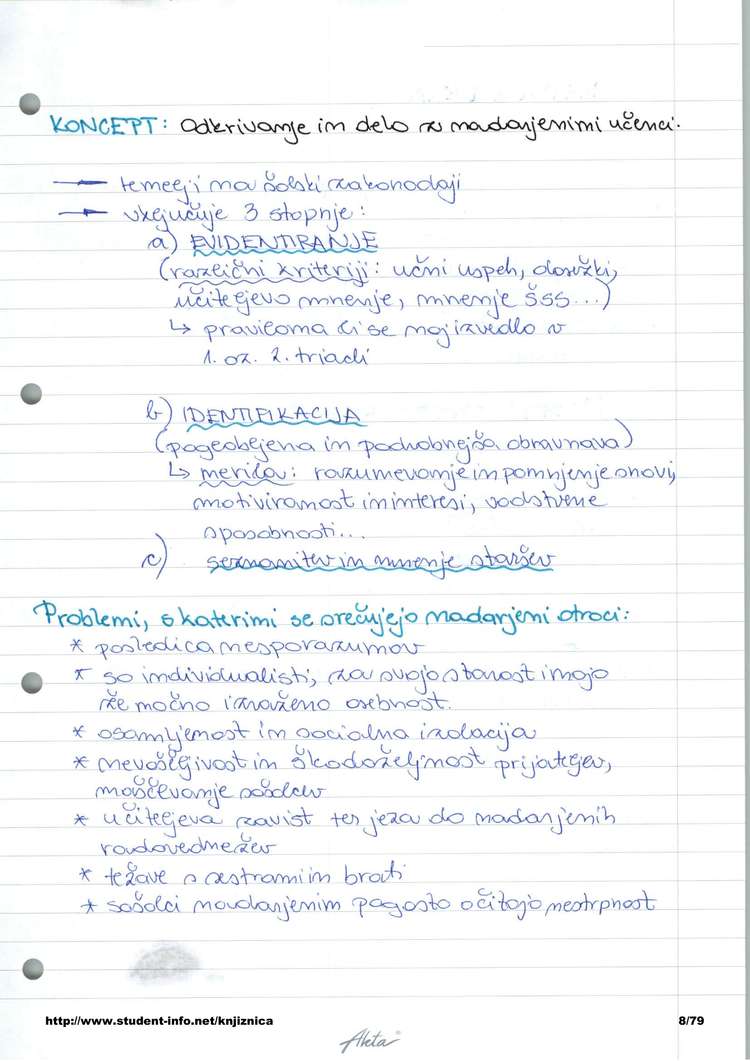 KONCEPT: Odkrivanje in delo z nadarjenimi učenci.
→ temelji na šolski zakonodaji
→ vključuje 3 stopnje:
a) EVIDENTIRANJE
(različni kriteriji: učni uspeh, dosežki,
učiteljevo mnenje, mnenje ŠSS...)
↳ praviloma bi se naj izvedlo v
1. oz. 2. triadi
b) IDENTIFIKACIJA
(poglobljena in podrobnejša obravnava)
↳ merila: razumevanje in pomnjenje snovi,
motiviranost in interesi, vodstvene
sposobnosti...
c) seznanitev in mnenje staršev
Problemi, s katerimi se srečujejo nadarjeni otroci:
* posledica nesporazumov
* so individualisti, za svojo starost imajo
že močno izraženo osebnost.
* osamljenost in socialna izolacija
* nevoščljivost in škodoželjnost prijateljev,
maščevanje sošolcev
* učiteljeva zavist ter jeza do nadarjenih
radovednežev
* težave s sestrami in brati
* sošolci nadarjenim pogosto očitajo nestrpnost
http://www.student-info.net/knjiznica
8/79
Akta